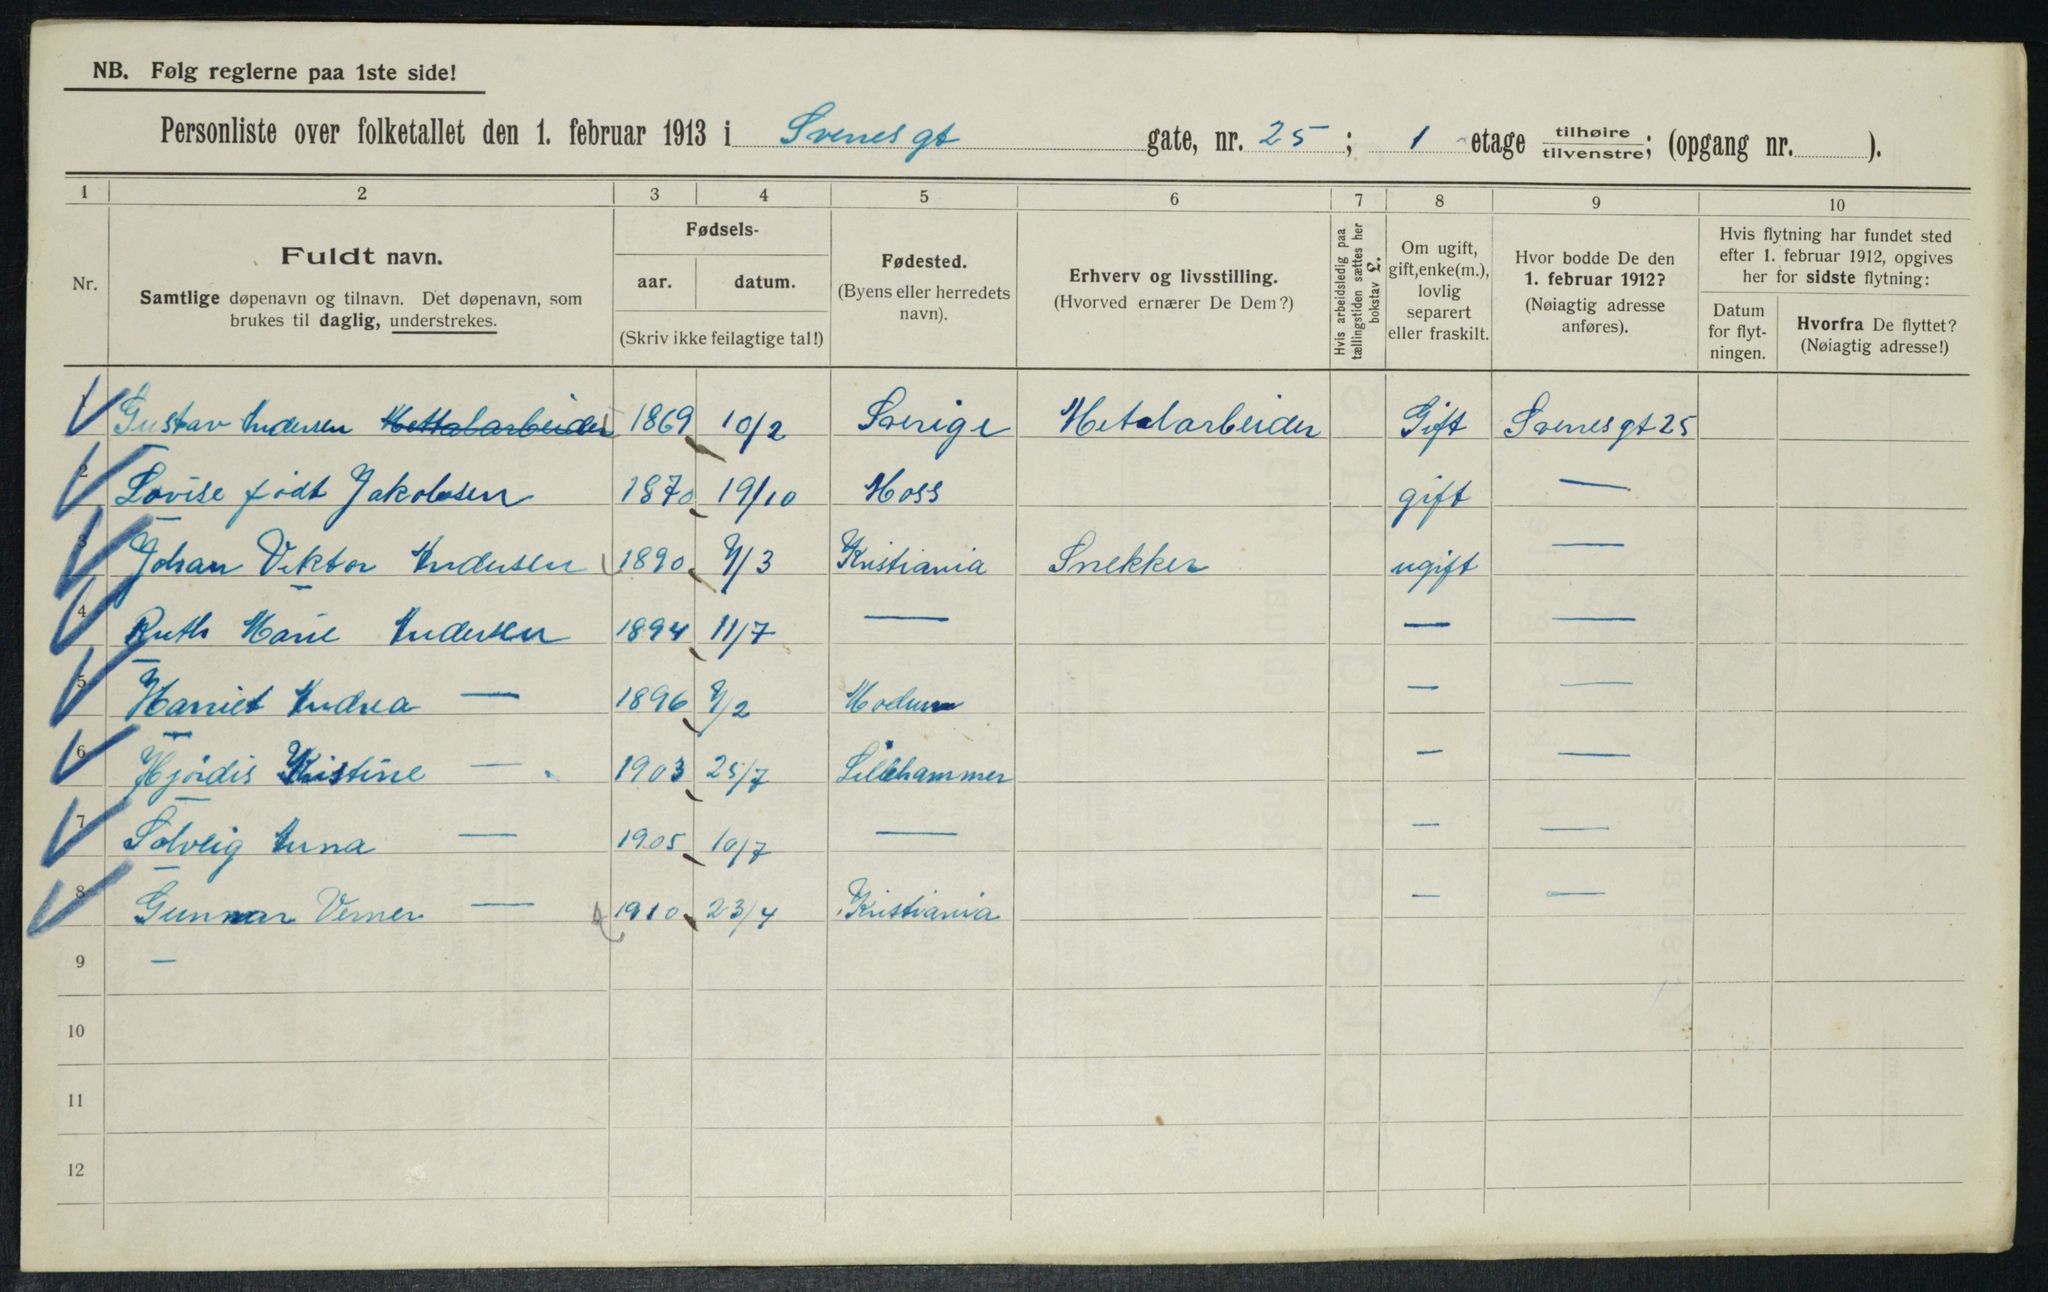 NB. Følg reglerne paa 1ste side!
Personliste over folketallet den 1. februar 1913 i Svenesgt gate, nr. 25; 1 etage tilhøire/tilvenstre; (opgang nr. ).
1 2 3 4 5 6 7 8 9 10
Nr.
Fuldt navn.
Samtlige døpenavn og tilnavn. Det døpenavn, som
brukes til daglig, understrekes.
Fødsels-
aar. datum.
(Skriv ikke feilagtige tal!)
Fødested.
(Byens eller herredets
navn).
Erhverv og livsstilling.
(Hvorved ernærer De Dem?)
Hvis arbeidsledig paa
tællingstiden sættes her
bokstav L.
Om ugift,
gift, enke(m.),
lovlig
separert
eller fraskilt.
Hvor bodde De den
1. februar 1912?
(Nøiagtig adresse
anføres).
Hvis flytning har fundet sted
efter 1. februar 1912, opgives
her for sidste flytning:
Datum
for flyt-
ningen.
Hvorfra De flyttet?
(Nøiagtig adresse!)
1 Gustav Andersen Mettalarbeider 1869 10/2 Sverige Metalarbeider Gift Svenesgt 25
2 Lovise født Jakobsen 1870 19/10 Moss gift —
3 Johan Viktor Andersen 1890 7/3 Kristiania Snekker ugift —
4 Ruth Marie Andersen 1894 11/7 — — —
5 Harriet Andrea — 1896 7/2 Modum — —
6 Hjørdis Kristine — 1903 25/7 Lillehammer — —
7 Solveig Anna — 1905 10/7 — — —
8 Gunnar Verner — 1910 23/4 Kristiania — —
9 —
10
11
12